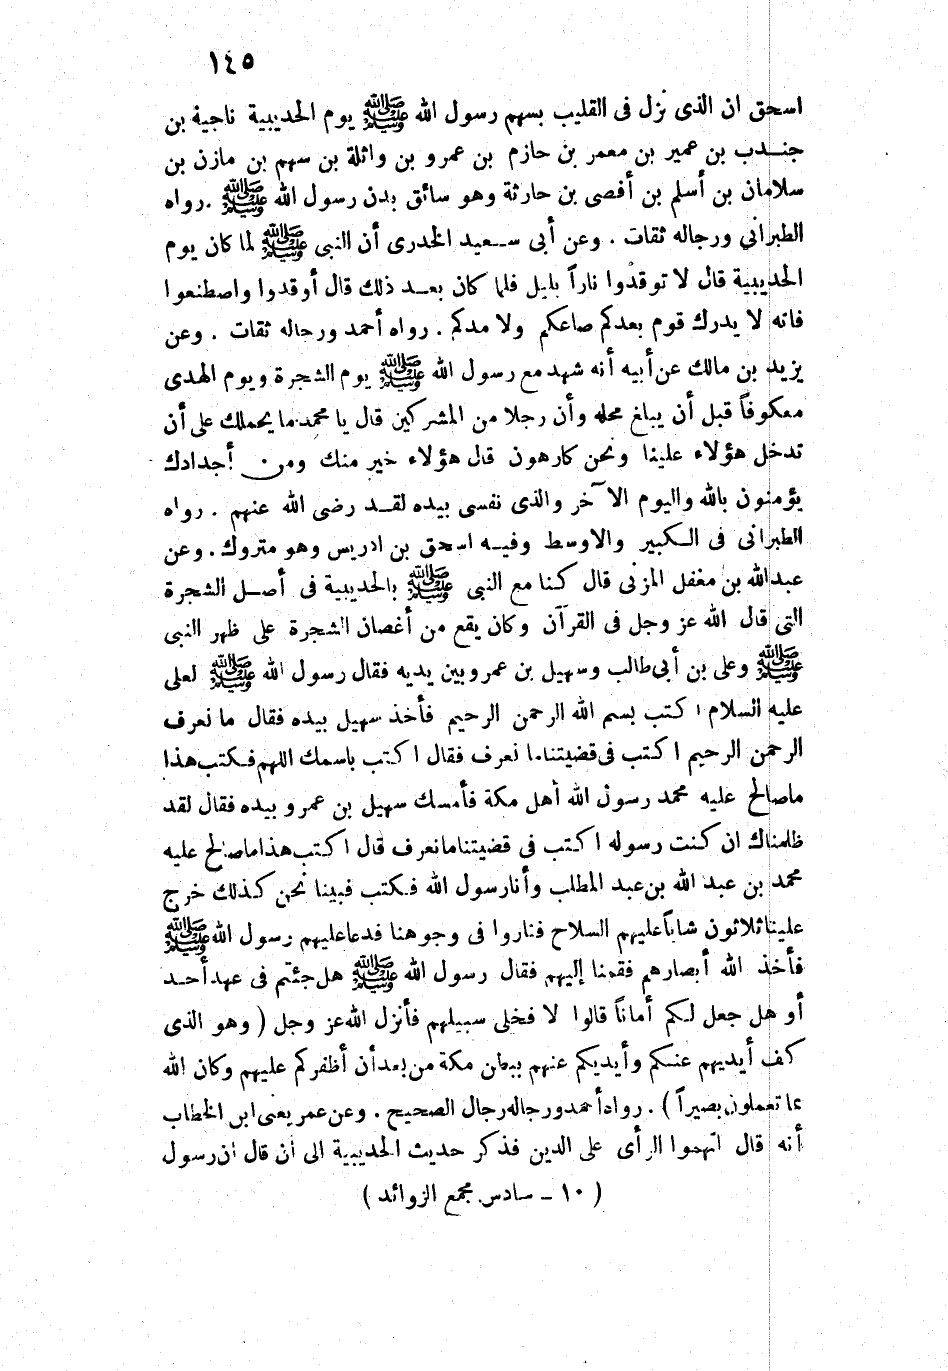 ١٤٥
اسحق ان الذى نزل فى القليب بسهم رسول الله ﷺ يوم الحديبية ناجية بن
جندب بن عمير بن معمر بن حازم بن عمرو بن واثلة بن سهم بن مازن بن
سلامان بن أسلم بن أفصى بن حارثة وهو سائق بدن رسول الله ﷺ . رواه
الطبراني ورجاله ثقات . وعن أبى سعيد الخدرى أن النبى ﷺ لما كان يوم
الحديبية قال لا توقدوا ناراً بليل فلما كان بعد ذلك قال أوقدوا واصطنعوا
فانه لا يدرك قوم بعدكم صاعكم ولا مدكم . رواه أحمد ورجاله ثقات . وعن
يزيد بن مالك عن أبيه أنه شهد مع رسول الله ﷺ يوم الشجرة ويوم الهدى
معكوفاً قبل أن يبلغ محله وأن رجلا من المشركين قال يا محمد ما يحملك على أن
تدخل هؤلاء علينا ونحن كارهون قال هؤلاء خير منك ومن أجدادك
يؤمنون بالله واليوم الآخر والذى نفسى بيده لقد رضى الله عنهم . رواه
الطبرانى فى الكبير والاوسط وفيه اسحق بن ادريس وهو متروك . وعن
عبدالله بن مغفل المزنى قال كنا مع النبى ﷺ بالحديبية فى أصل الشجرة
التى قال الله عز وجل فى القرآن وكان يقع من أغصان الشجرة على ظهر النبى
ﷺ وعلى بن أبى طالب وسهيل بن عمرو بين يديه فقال رسول الله ﷺ لعلى
عليه السلام اكتب بسم الله الرحمن الرحيم فأخذ سهيل بيده فقال ما نعرف
الرحمن الرحيم اكتب فى قضيتنا ما نعرف فقال اكتب باسمك اللهم فكتب هذا
ما صالح عليه محمد رسول الله أهل مكة فأمسك سهيل بن عمرو بيده فقال لقد
ظلمناك ان كنت رسوله اكتب فى قضيتنا ما نعرف قال اكتب هذا ما صالح عليه
محمد بن عبد الله بن عبد المطلب وأنا رسول الله فكتب فبينا نحن كذلك خرج
علينا ثلاثون شاباً عليهم السلاح فثاروا فى وجوهنا فدعا عليهم رسول الله ﷺ
فأخذ الله أبصارهم فقمنا إليهم فقال رسول الله ﷺ هل جئتم فى عهد أحد
أو هل جعل لكم أماناً قالوا لا فخلى سبيلهم فأنزل الله عز وجل ( وهو الذى
كف أيديهم عنكم وأيديكم عنهم ببطن مكة من بعد أن أظفركم عليهم وكان الله
بما تعملون بصيراً ) . رواه أحمد ورجاله رجال الصحيح . وعن عمر يعنى ابن الخطاب
أنه قال اتهموا الرأى على الدين فذكر حديث الحديبية الى ان قال ان رسول
( ١٠ - سادس مجمع الزوائد )